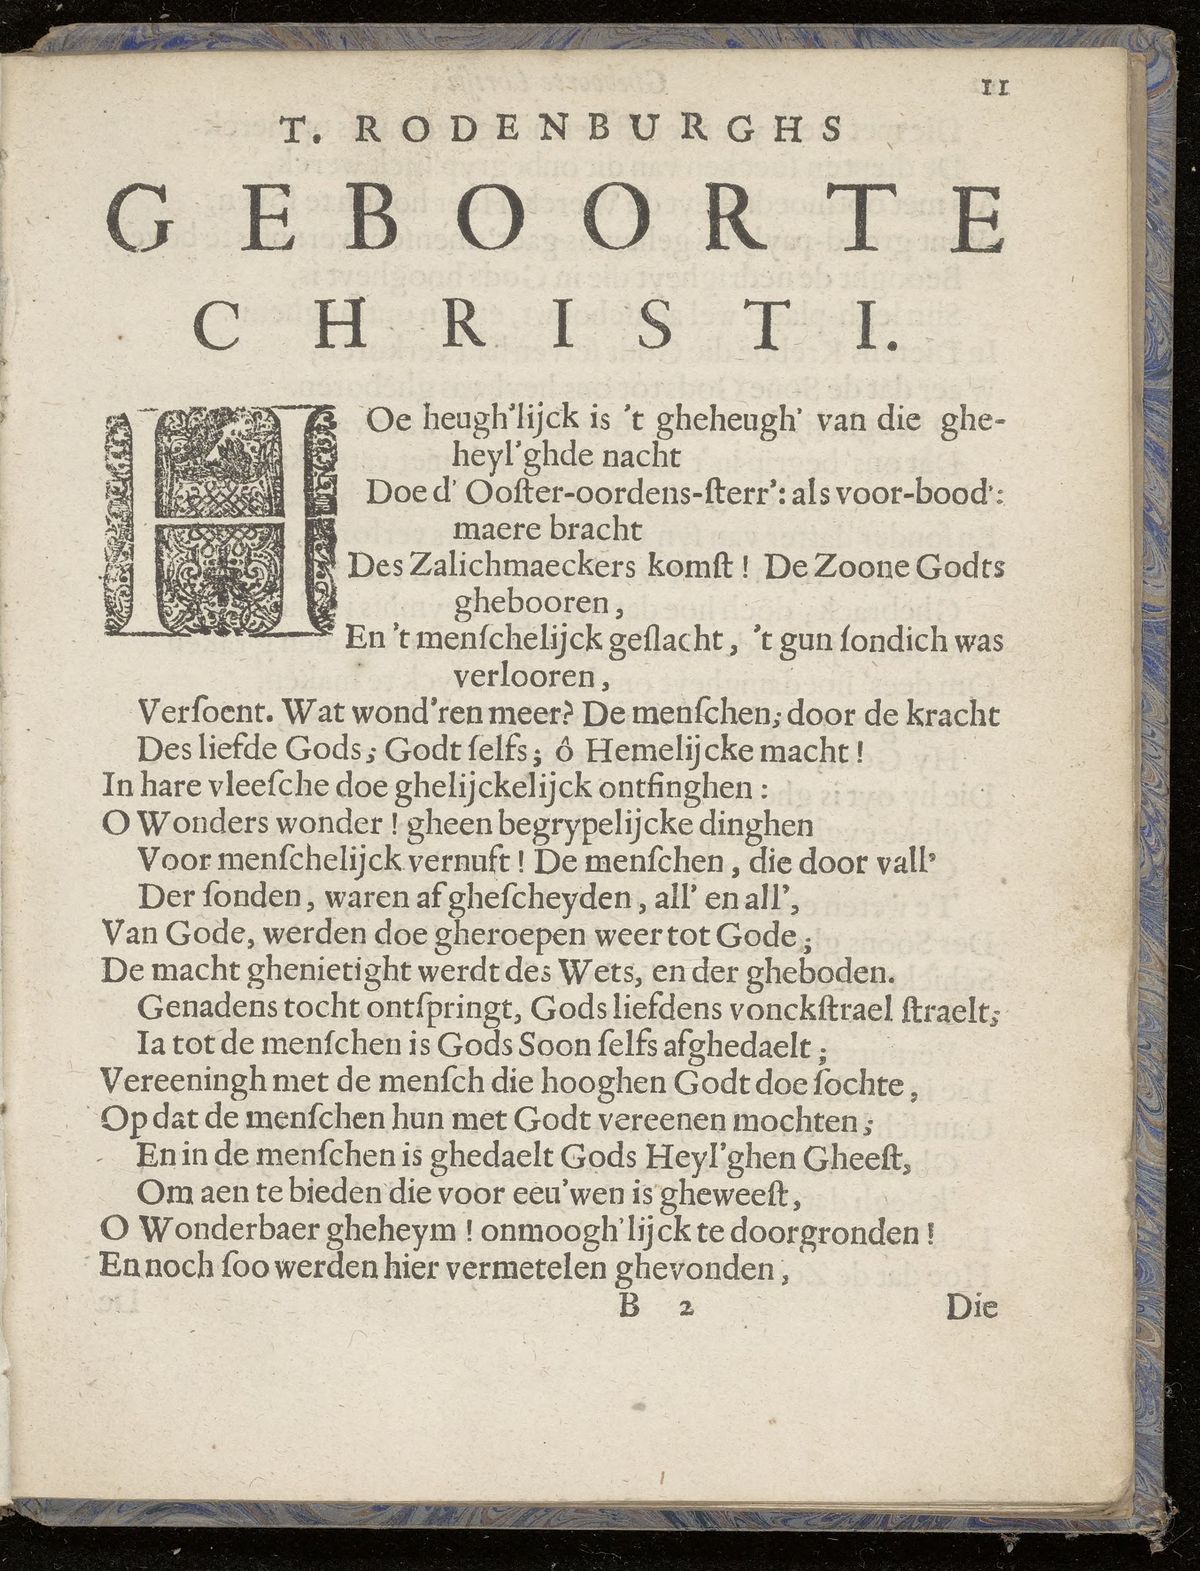 11
T. RODENBURGHS
GEBOORTE
CHRISTI.
HOe heugh'lijck is 't gheheugh' van die ghe-
heyl'ghde nacht
Doe d' Ooſter-oordens-ſterr': als voor-bood':
maere bracht
Des Zalichmaeckers komſt ! De Zoone Godts
ghebooren,
En 't menſchelijck geſlacht, 't gun ſondich was
verlooren,
Verſoent. Wat wond'ren meer? De menſchen; door de kracht
Des liefde Gods; Godt ſelfs; ô Hemelijcke macht !
In hare vleeſche doe ghelijckelijck ontfinghen :
O Wonders wonder ! gheen begrypelijcke dinghen
Voor menſchelijck vernuft ! De menſchen, die door vall'
Der ſonden, waren af gheſcheyden, all' en all',
Van Gode, werden doe gheroepen weer tot Gode;
De macht ghenietight werdt des Wets, en der gheboden.
Genadens tocht ontſpringt, Gods liefdens vonckſtrael ſtraelt;
Ia tot de menſchen is Gods Soon ſelfs afghedaelt;
Vereeningh met de menſch die hooghen Godt doe ſochte,
Op dat de menſchen hun met Godt vereenen mochten;
En in de menſchen is ghedaelt Gods Heyl'ghen Gheeſt,
Om aen te bieden die voor eeu'wen is gheweeſt,
O Wonderbaer gheheym ! onmoogh'lijck te doorgronden !
En noch ſoo werden hier vermetelen ghevonden,
B 2 Die